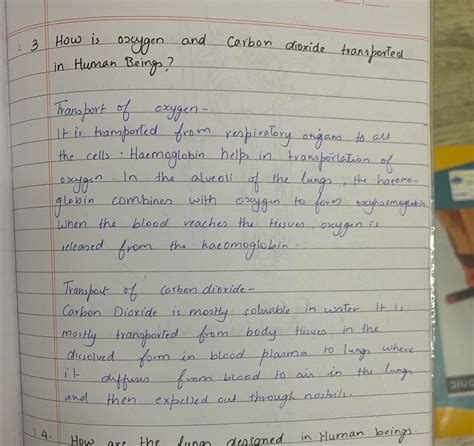 3 How is oxygen and Carbon dioxide transported
in Human Beings?
Transport of oxygen -
It is tramported from respiratory organs to all
the cells. Haemaglobin helps in transportation of
oxygen. In the alveoli of the lungs, the haemo-
globin combines with oxygen to form oxyhaemoglobin
When the blood reaches the tissues, oxygen is
released from the haemoglobin.
Transport of carbon dioxide -
Carbon Dioxide is mostly soluable in water It is
mostly transported from body tissues in the
dissolved form in blood plasma to lungs where
it diffuses from blood to air in the lungs
and then expelled out through nostrils.
4. How are the lungs designed in Human beings